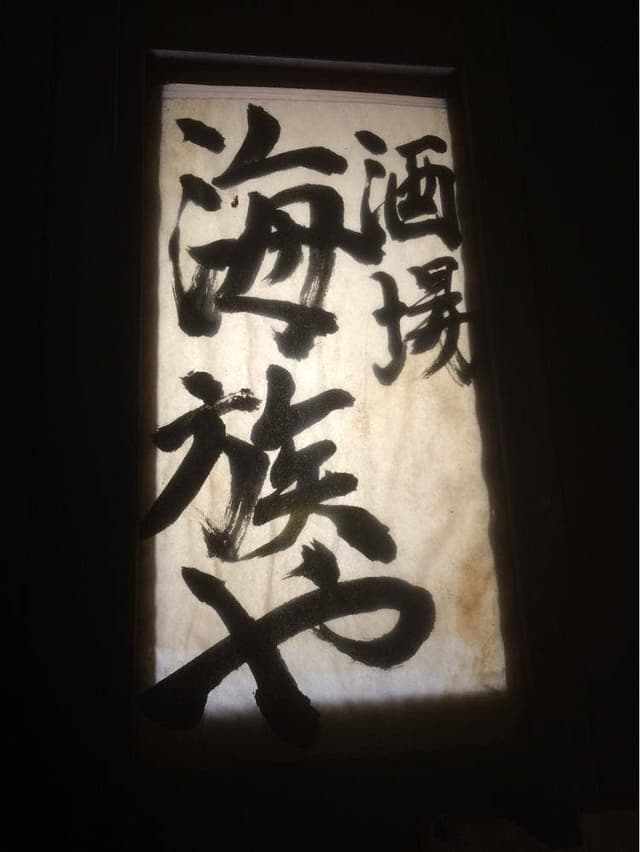 酒場
海族や